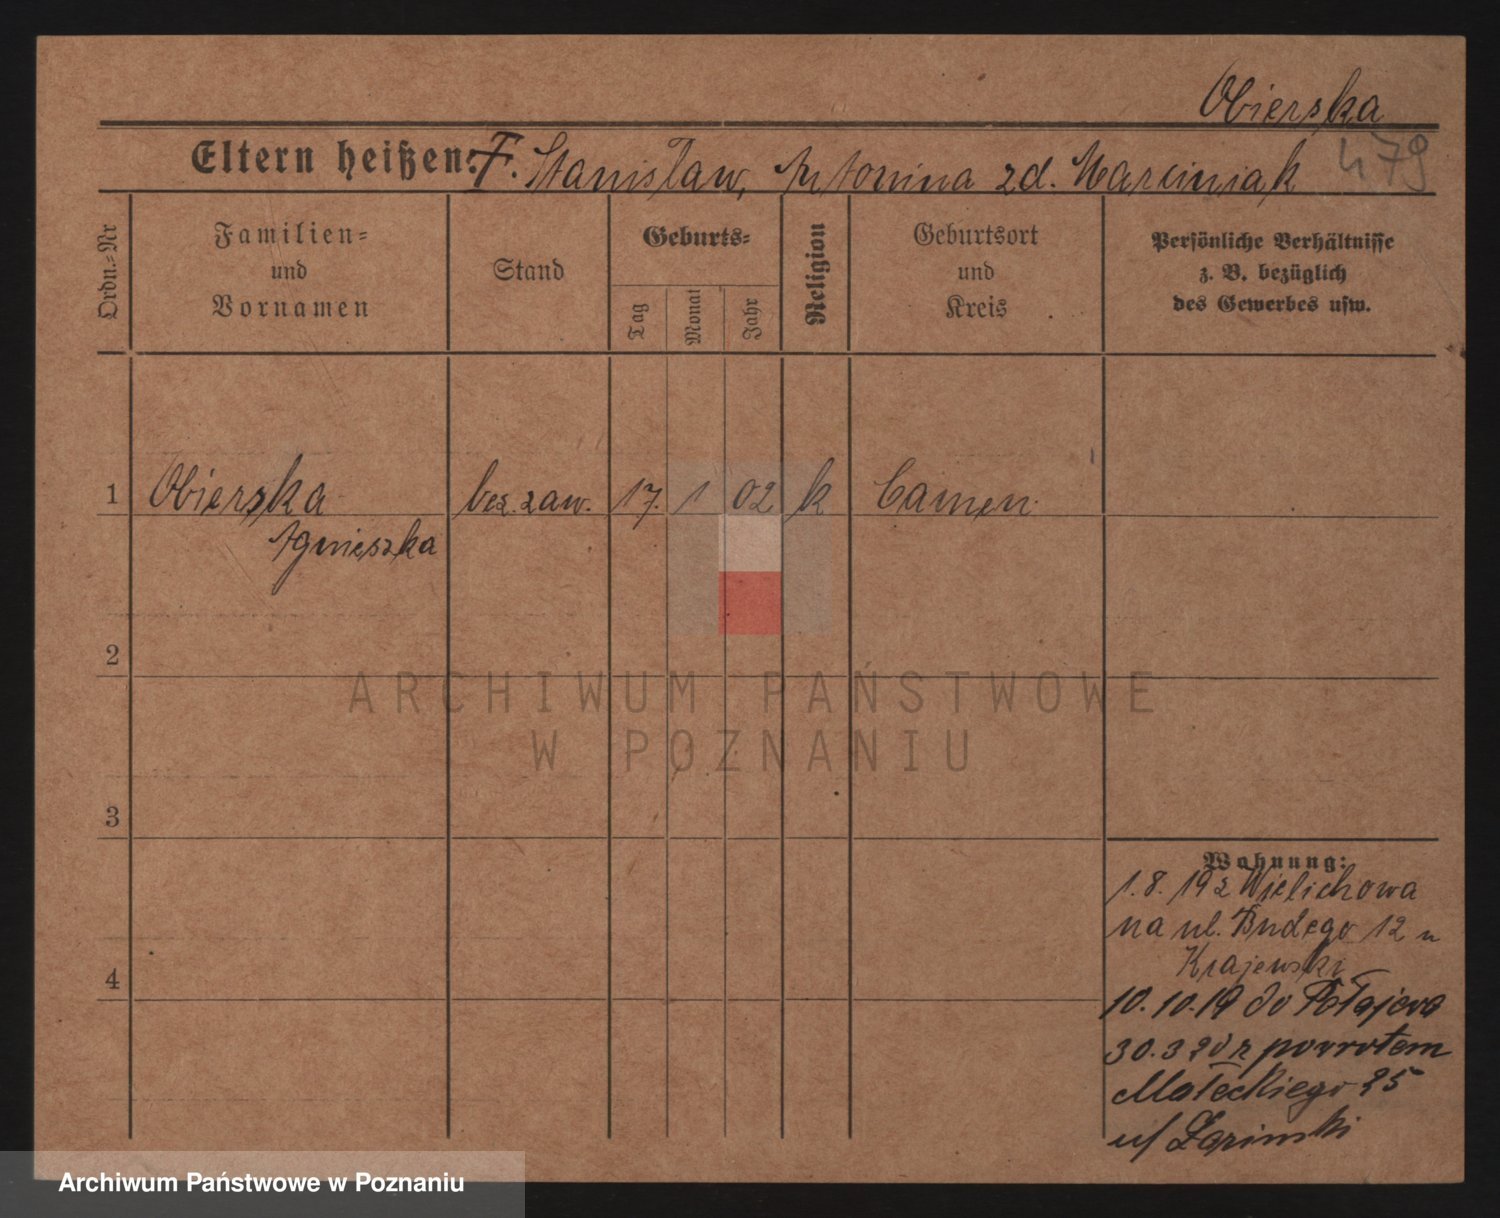 Obierska
Eltern heißen: F. Stanisław, Antonina zd. Marciniak
479
Ordn.-Nr
Familien- und Vornamen
Stand
Geburts-
Tag
Monat
Jahr
Religion
Geburtsort und Kreis
Persönliche Verhältnisse
z. B. bezüglich
des Gewerbes usw.
1 Obierska bez. zaw. 17. 1 02 k Camen
Agnieszka
2
3
4
Wohnung:
1.8.19 z Wielichowa
na ul. 12 u
Krajewski
10.10.19 do Połajewa
30.3 20 z powrotem
Małeckiego 25
u/
ARCHIWUM PAŃSTWOWE
W POZNANIU
Archiwum Państwowe w Poznaniu